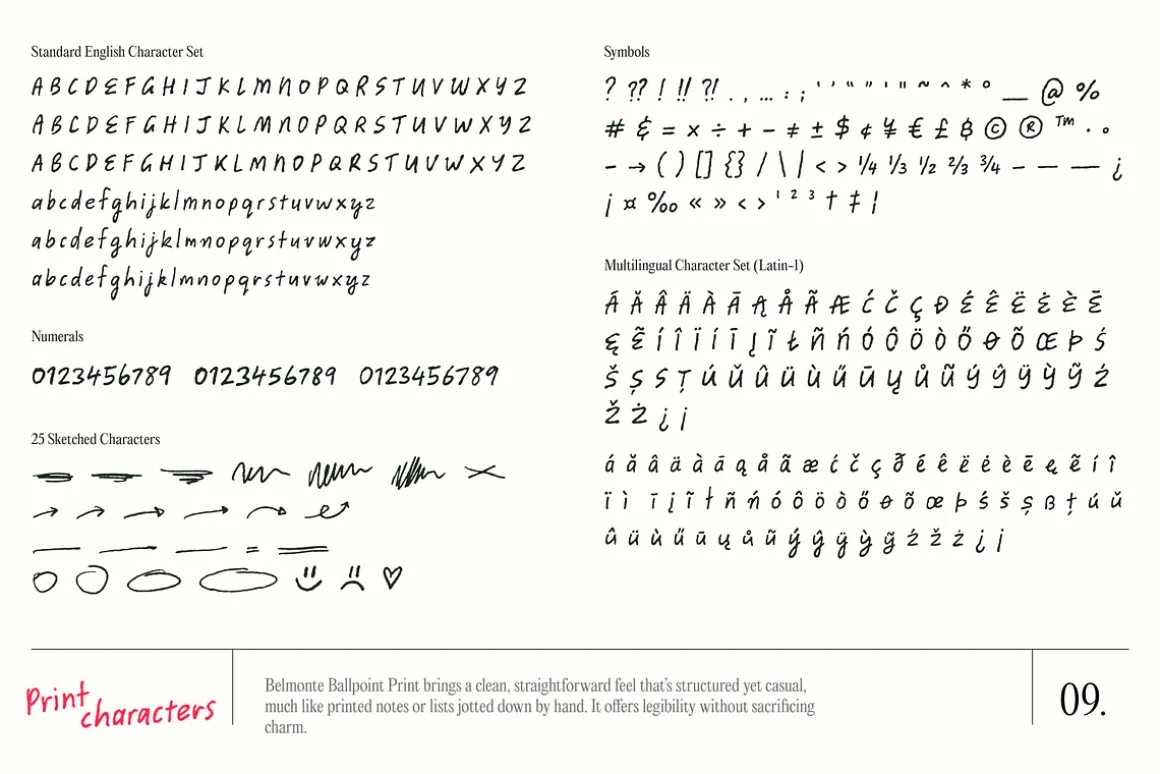 Standard English Character Set
A B C D E F G H I J K L M N O P Q R S T U V W X Y Z
A B C D E F G H I J K L M N O P Q R S T U V W X Y Z
A B C D E F G H I J K L M N O P Q R S T U V W X Y Z
a b c d e f g h i j k l m n o p q r s t u v w x y z
a b c d e f g h i j k l m n o p q r s t u v w x y z
a b c d e f g h i j k l m n o p q r s t u v w x y z
Numerals
0123456789 0123456789 0123456789
25 Sketched Characters
Symbols
? ?? ! !! ?! . , … : ; ‘ ’ “ ” ' " ~ ^ * ° _ @ %
# & = × ÷ + − ≠ ± $ ¢ ¥ € £ ฿ © ® ™ · ∘
- → ( ) [] {} / \ | < > ¼ ⅓ ½ ⅔ ¾ - – — ¿
¡ ¤ ‰ « » ‹ › ¹ ² ³ † ‡ ¦
Multilingual Character Set (Latin-1)
Á Ă Â Ä À Ā Ą Å Ã Æ Ć Č Ç Đ É Ê Ë Ė È Ē
Ę Ẽ Í Î Ï Í Ī Į Ĩ Ł Ñ Ń Ó Ô Ö Ò Ő Ø Õ Œ Þ Ś
Š Ș S Ț Ú Ŭ Û Ü Ù Ű Ū Ų Ů Ũ Ý Ŷ Ÿ Ỳ Ỹ Ź
Ž Ż ¿ ¡
á ă â ä à ā ą å ã æ ć č ç ð é ê ë ė è ē ę ẽ í î
ï ì ī į ĩ ł ñ ń ó ô ö ò ő ø õ œ þ ś š ș ß ț ú ŭ
û ü ù ű ū ų ů ũ ý ŷ ÿ ỳ ỹ ź ž ż ¿ ¡
Print
characters
Belmonte Ballpoint Print brings a clean, straightforward feel that's structured yet casual,
much like printed notes or lists jotted down by hand. It offers legibility without sacrificing
charm.
09.